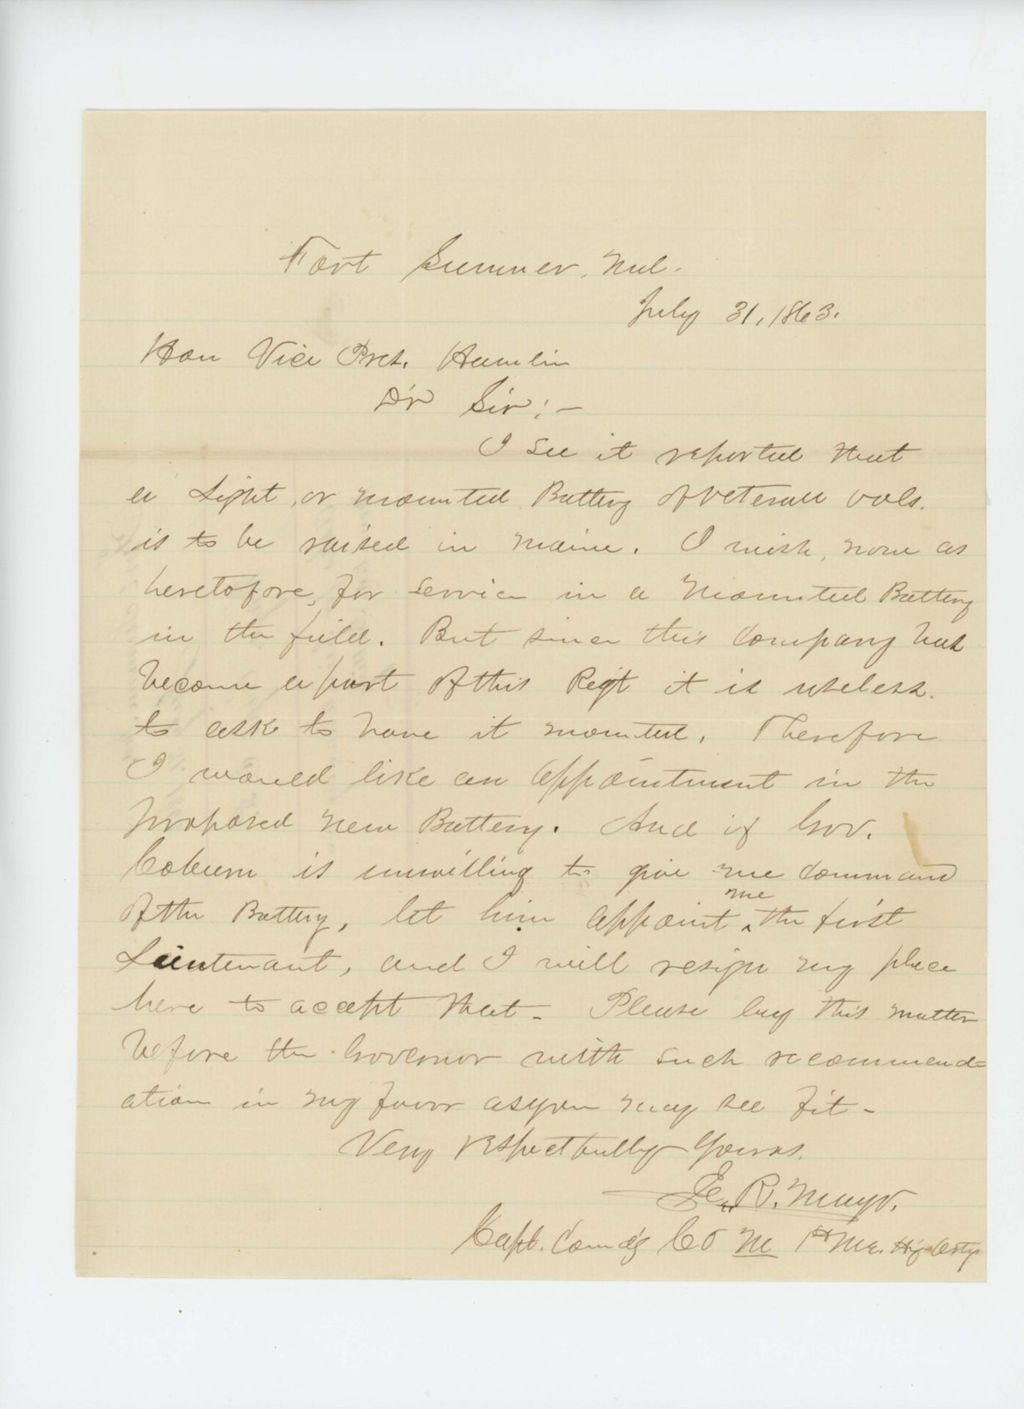 Fort Sumner, Md.
July 31, 1863.
Hon Vice Pres. Hamlin
Dr Sir:-
I see it reported that
a Light, or mounted Battery of veteran vols.
is to be raised in Maine. I wish, now as
heretofore, for service in a Mounted Battery
in the field. But since this Company has
become a part of this Regt it is useless
to ask to have it mounted. Therefore
I would like an appointment in the
proposed new Battery. And if Gov.
Coburn is unwilling to give me command
of the Battery, let him appoint me the first
Lieutenant, and I will resign my place
here to accept that - Please lay this matter
before the Governor with such recommend=
ation in my favor as you may see fit -
Very respectfully yours.
E. R. Mayo.
Capt. Comdg Co M 1st Me. Hy Arty